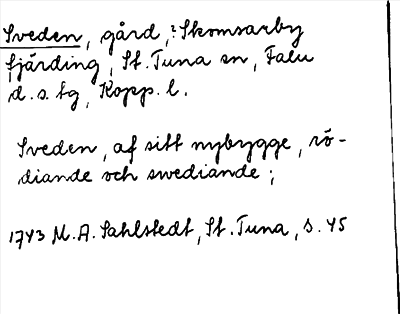 Sveden, gård, ? Skomsarby
fjärding, St. Tuna sn, Falu
d. s. tg, Kopp. l.
Sveden, af sitt nybygge, rö-
diande och swediande;
1743 M. A. Sahlstedt, St. Tuna, s. 45